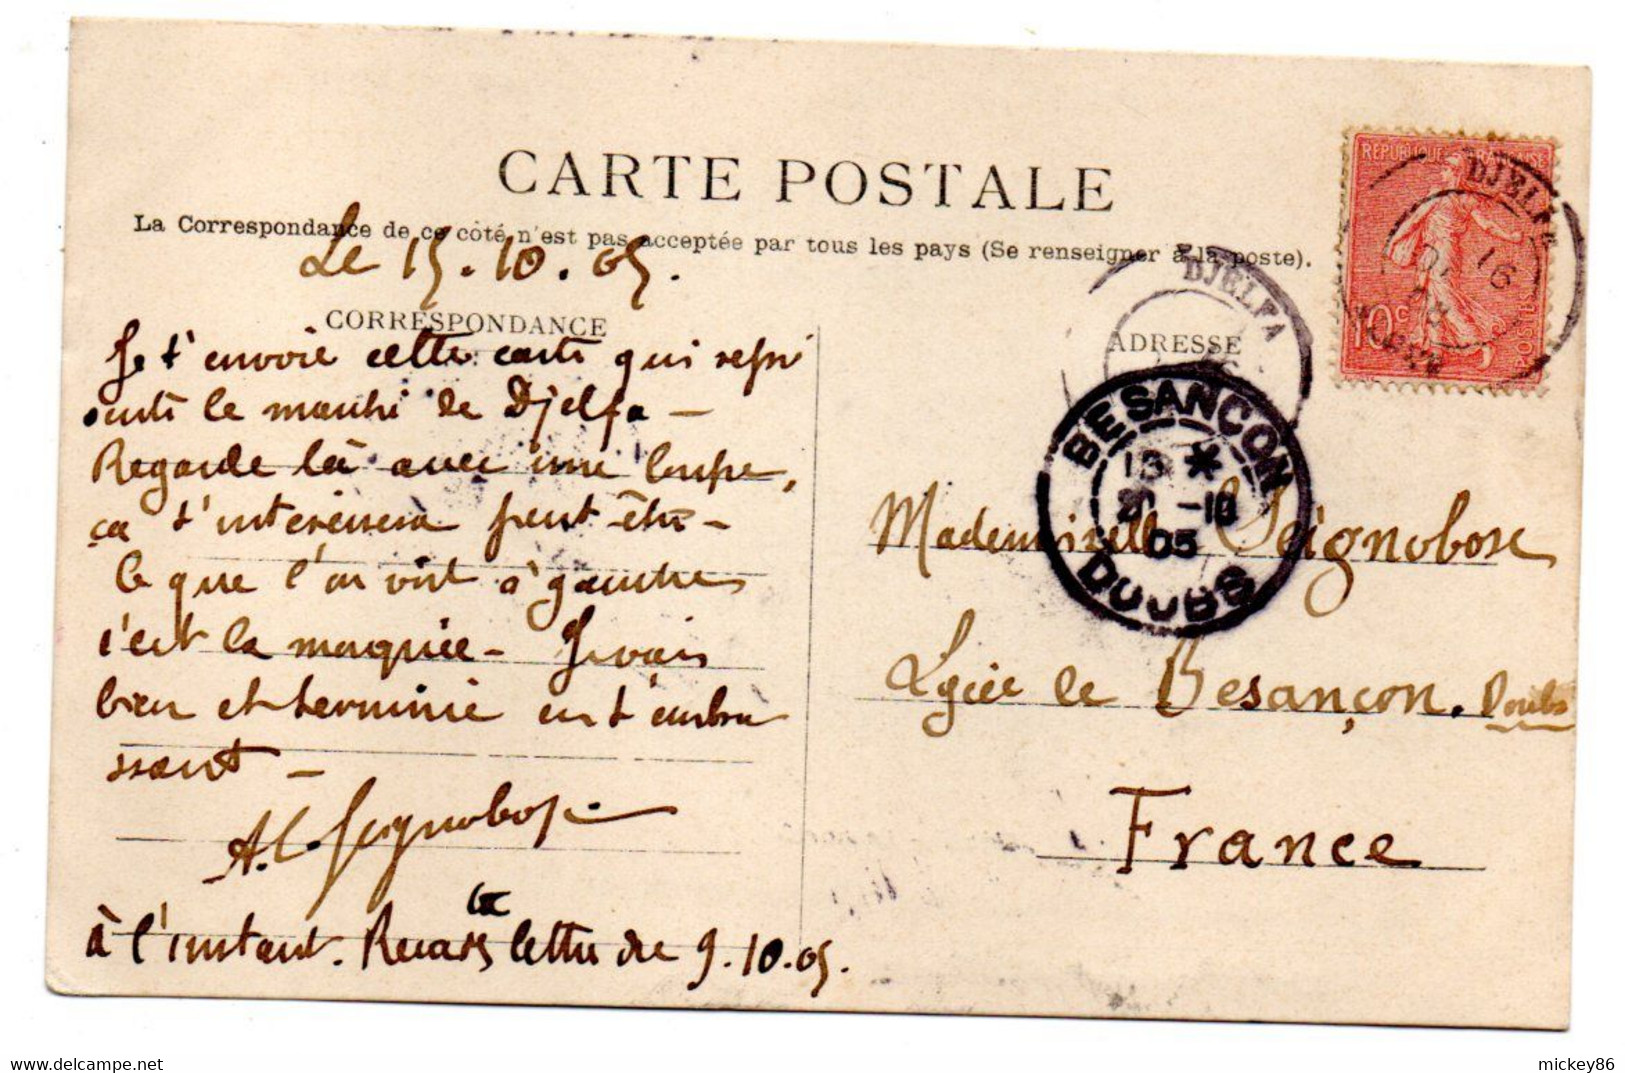 CARTE POSTALE
La Correspondance de ce côté n'est pas acceptée par tous les pays (Se renseigner à la poste).
Le 15.10.05.
CORRESPONDANCE
Je t'envoie cette carte qui repré
sente le marché de Djelfa —
Regarde là avec une loupe,
ça t'intéressera peut-être —
Ce que l'on voit à gauche
c'est la mosquée — Je vais
bien et termine en t'embra
ssant —
A. L. Seignobosc
à l'instant. Reçois ta lettre du 9.10.05.
ADRESSE
Mademoiselle Seignobosc
Lycée de Besançon. Doubs
France
RÉPUBLIQUE FRANÇAISE
10c
POSTES
DJELFA
16
DJELFA
BESANÇON
10-05
DOUBS
mickey86